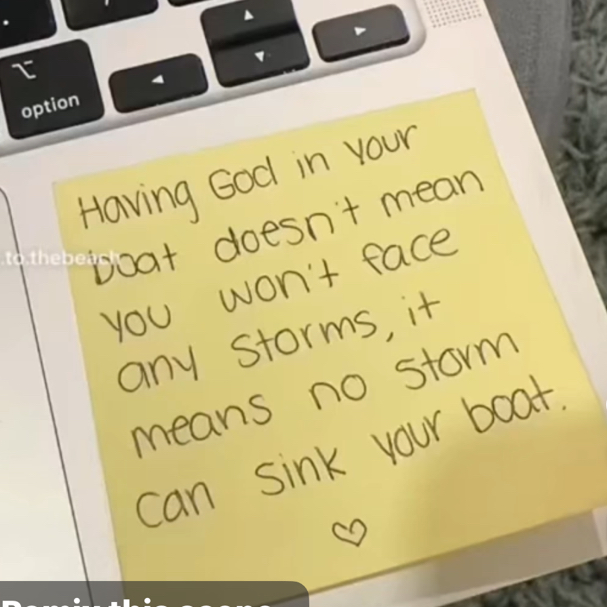 option
Having God in your
boat doesn't mean
you won't face
any storms, it
means no storm
can sink your boat.
.to.thebeach